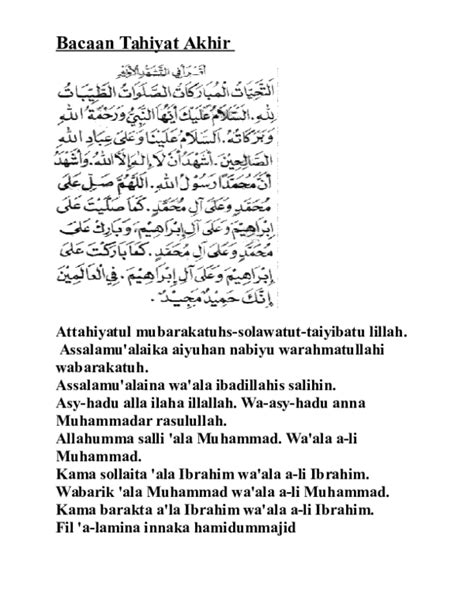 Bacaan Tahiyat Akhir
التَّحِيَّاتُ الْمُبَارَكَاتُ الصَّلَوَاتُ الطَّيِّبَاتُ
لِلَّهِ. السَّلَامُ عَلَيْكَ أَيُّهَا النَّبِيُّ وَرَحْمَةُ اللهِ
وَبَرَكَاتُهُ. السَّلَامُ عَلَيْنَا وَعَلَى عِبَادِ اللهِ
الصَّالِحِيْنَ. أَشْهَدُ أَنْ لَا إِلَهَ إِلَّا اللهُ. وَأَشْهَدُ
أَنَّ مُحَمَّدًا رَسُوْلُ اللهِ. اَللَّهُمَّ صَلِّ عَلَى
مُحَمَّدٍ وَعَلَى آلِ مُحَمَّدٍ. كَمَا صَلَّيْتَ عَلَى
إِبْرَاهِيْمَ وَعَلَى آلِ إِبْرَاهِيْمَ، وَبَارِكْ عَلَى
مُحَمَّدٍ وَعَلَى آلِ مُحَمَّدٍ. كَمَا بَارَكْتَ عَلَى
إِبْرَاهِيْمَ وَعَلَى آلِ إِبْرَاهِيْمَ. فِي الْعَالَمِيْنَ
إِنَّكَ حَمِيْدٌ مَجِيْدٌ.
Attahiyatul mubarakatuhs-solawatut-taiyibatu lillah.
Assalamu'alaika aiyuhan nabiyu warahmatullahi
wabarakatuh.
Assalamu'alaina wa'ala ibadillahis salihin.
Asy-hadu alla ilaha illallah. Wa-asy-hadu anna
Muhammadar rasulullah.
Allahumma salli 'ala Muhammad. Wa'ala a-li
Muhammad.
Kama sollaita 'ala Ibrahim wa'ala a-li Ibrahim.
Wabarik 'ala Muhammad wa'ala a-li Muhammad.
Kama barakta a'la Ibrahim wa'ala a-li Ibrahim.
Fil 'a-lamina innaka hamidummajid